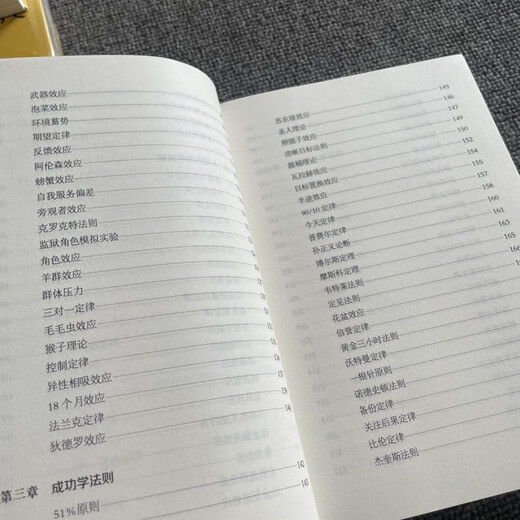 武器效应
泡菜效应
环境蓄势
期望定律
反馈效应
阿伦森效应
螃蟹效应
自我服务偏差
旁观者效应
克罗克特法则
监狱角色模拟实验
角色效应
羊群效应
群体压力
三对一定律
毛毛虫效应
猴子理论
控制定律
异性相吸效应
18个月效应
法兰克定律
狄德罗效应
第三章 成功学法则 142
51%原则 143
苏东坡效应 145
圣人理论 146
照镜子效应 147
清晰目标法则 149
旅桶理论 150
瓦拉赫效应 152
目标置换效应 155
半途效应 157
90/10定律 158
今天定律 160
普赛尔定律 161
孙正义论断 163
博尔斯定理 165
摩斯科定理 166
韦特莱法则
定见法则
花盆效应
信誉定律
黄金三小时法则
沃特曼定律
一根针原则
诺德史顿法则
备份定律
关注后果定律
比伦定律
杰奎斯法则